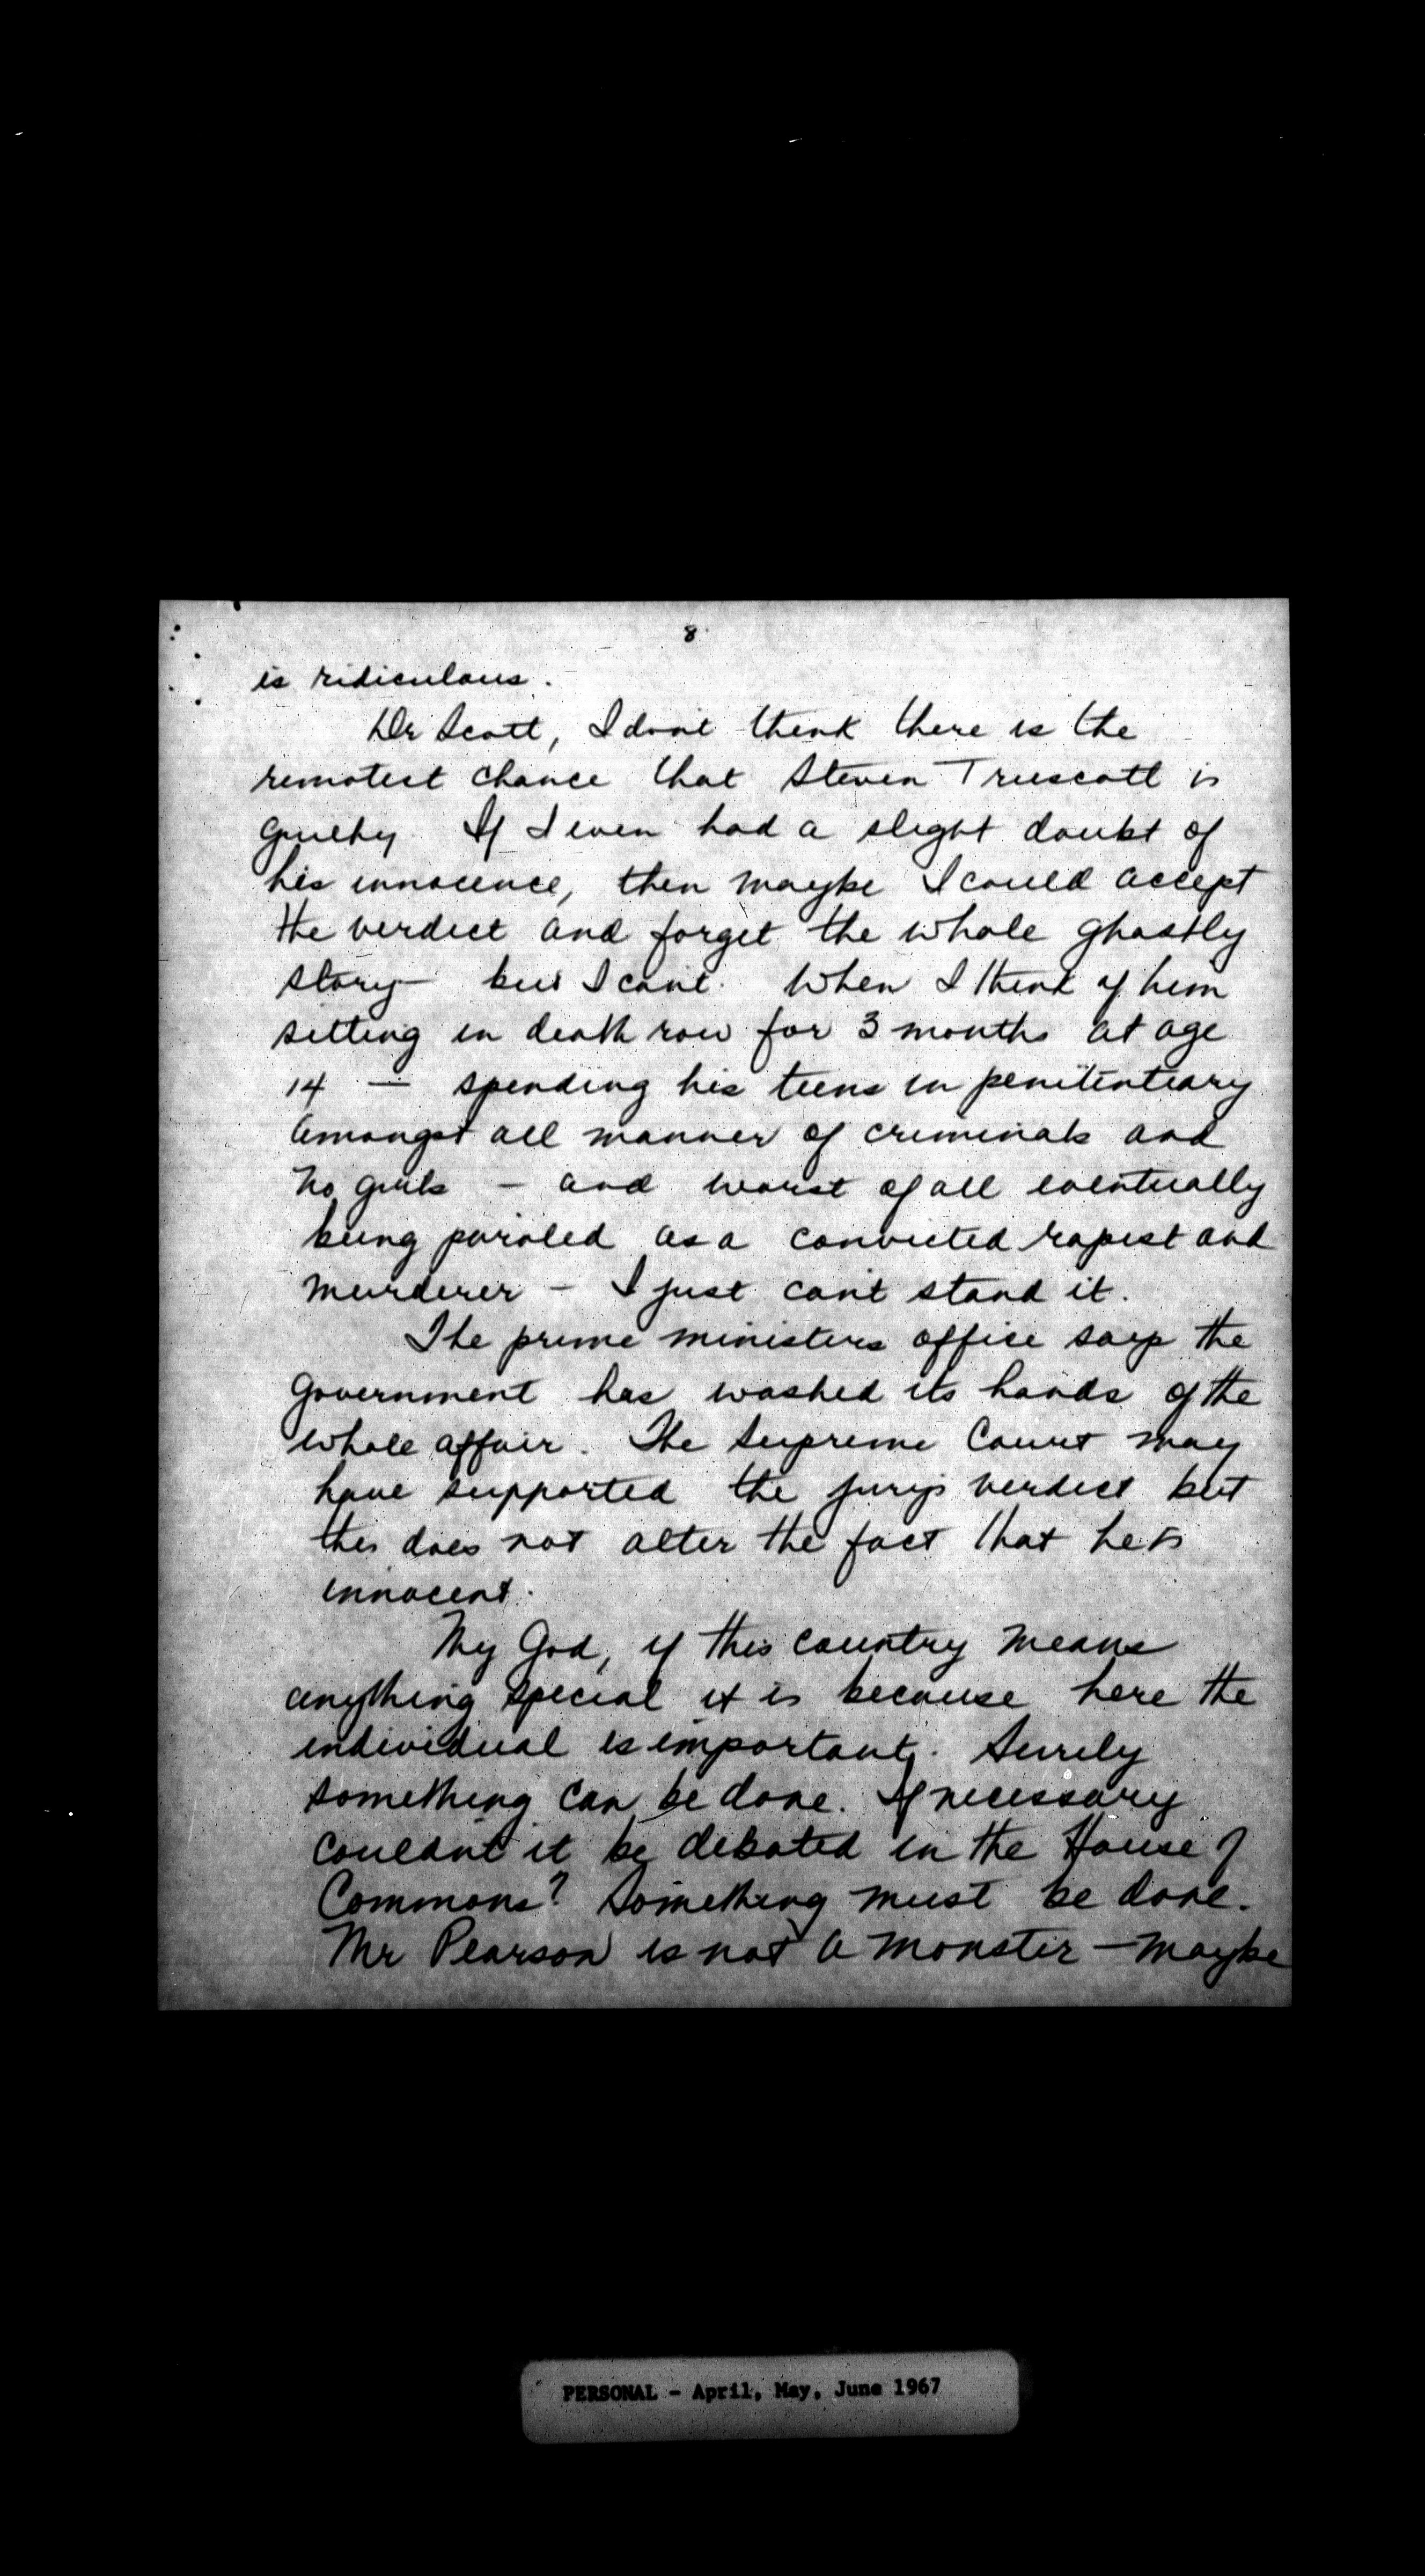 8
is ridiculous.
Dr Scott, I don't think there is the
remotest chance that Steven Truscott is
guilty. If I even had a slight doubt of
his innocence, then maybe I could accept
the verdict and forget the whole ghastly
story - but I can't. When I think of him
sitting in death row for 3 months at age
14 — spending his teens in penitentiary
amongst all manner of criminals and
no girls - and worst of all eventually
being paroled as a convicted rapist and
murderer - I just can't stand it.
The prime ministers office says the
Government has washed its hands of the
whole affair. The Supreme Court may
have supported the jury's verdict but
this does not alter the fact that he is
innocent.
My God, if this country means
anything special it is because here the
individual is important. Surely
something can be done. If necessary
couldn't it be debated in the House of
Commons? Something must be done.
Mr Pearson is not a monster - maybe
PERSONAL - April, May, June 1967